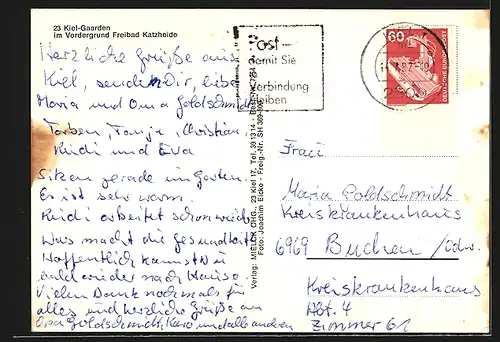 23 Kiel-Gaarden
im Vordergrund Freibad Katzheide
Herzliche Grüße aus
Kiel, senden Dir, liebe
Maria und Oma Goldschmidt
Torben, Tanja, Christian
Rudi und Eva
Sitzen gerade im Garten
Es ist sehr warm.
Rudi arbeitet schon wieder
Was macht die Gesundheit
Hoffentlich kannst Du
bald wieder nach Hause.
Vielen Dank nochmals für
alles und herzliche Grüße an
Opa Goldschmidt, Karo und alle anderen
Verlag: MIELCK OHG, 23 Kiel 17, Tel. 391314
Foto: Joachim Eicke - Freig.-Nr. SH
Post -
damit Sie
in Verbindung
bleiben
60
DEUTSCHE BUNDESPOST
Frau
Maria Goldschmidt
Kreiskrankenhaus
6969 Buchen/Odw.
Kreiskrankenhaus
Abt. 4
Zimmer 61